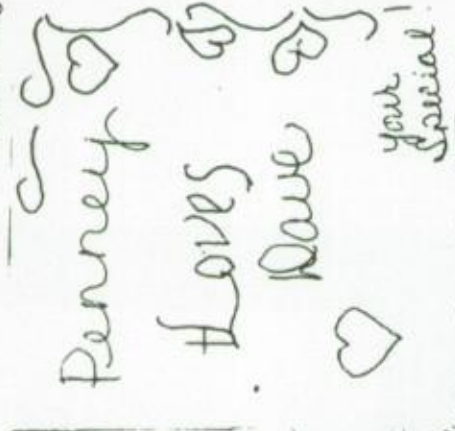 Penney
Loves
Dave
your
Special